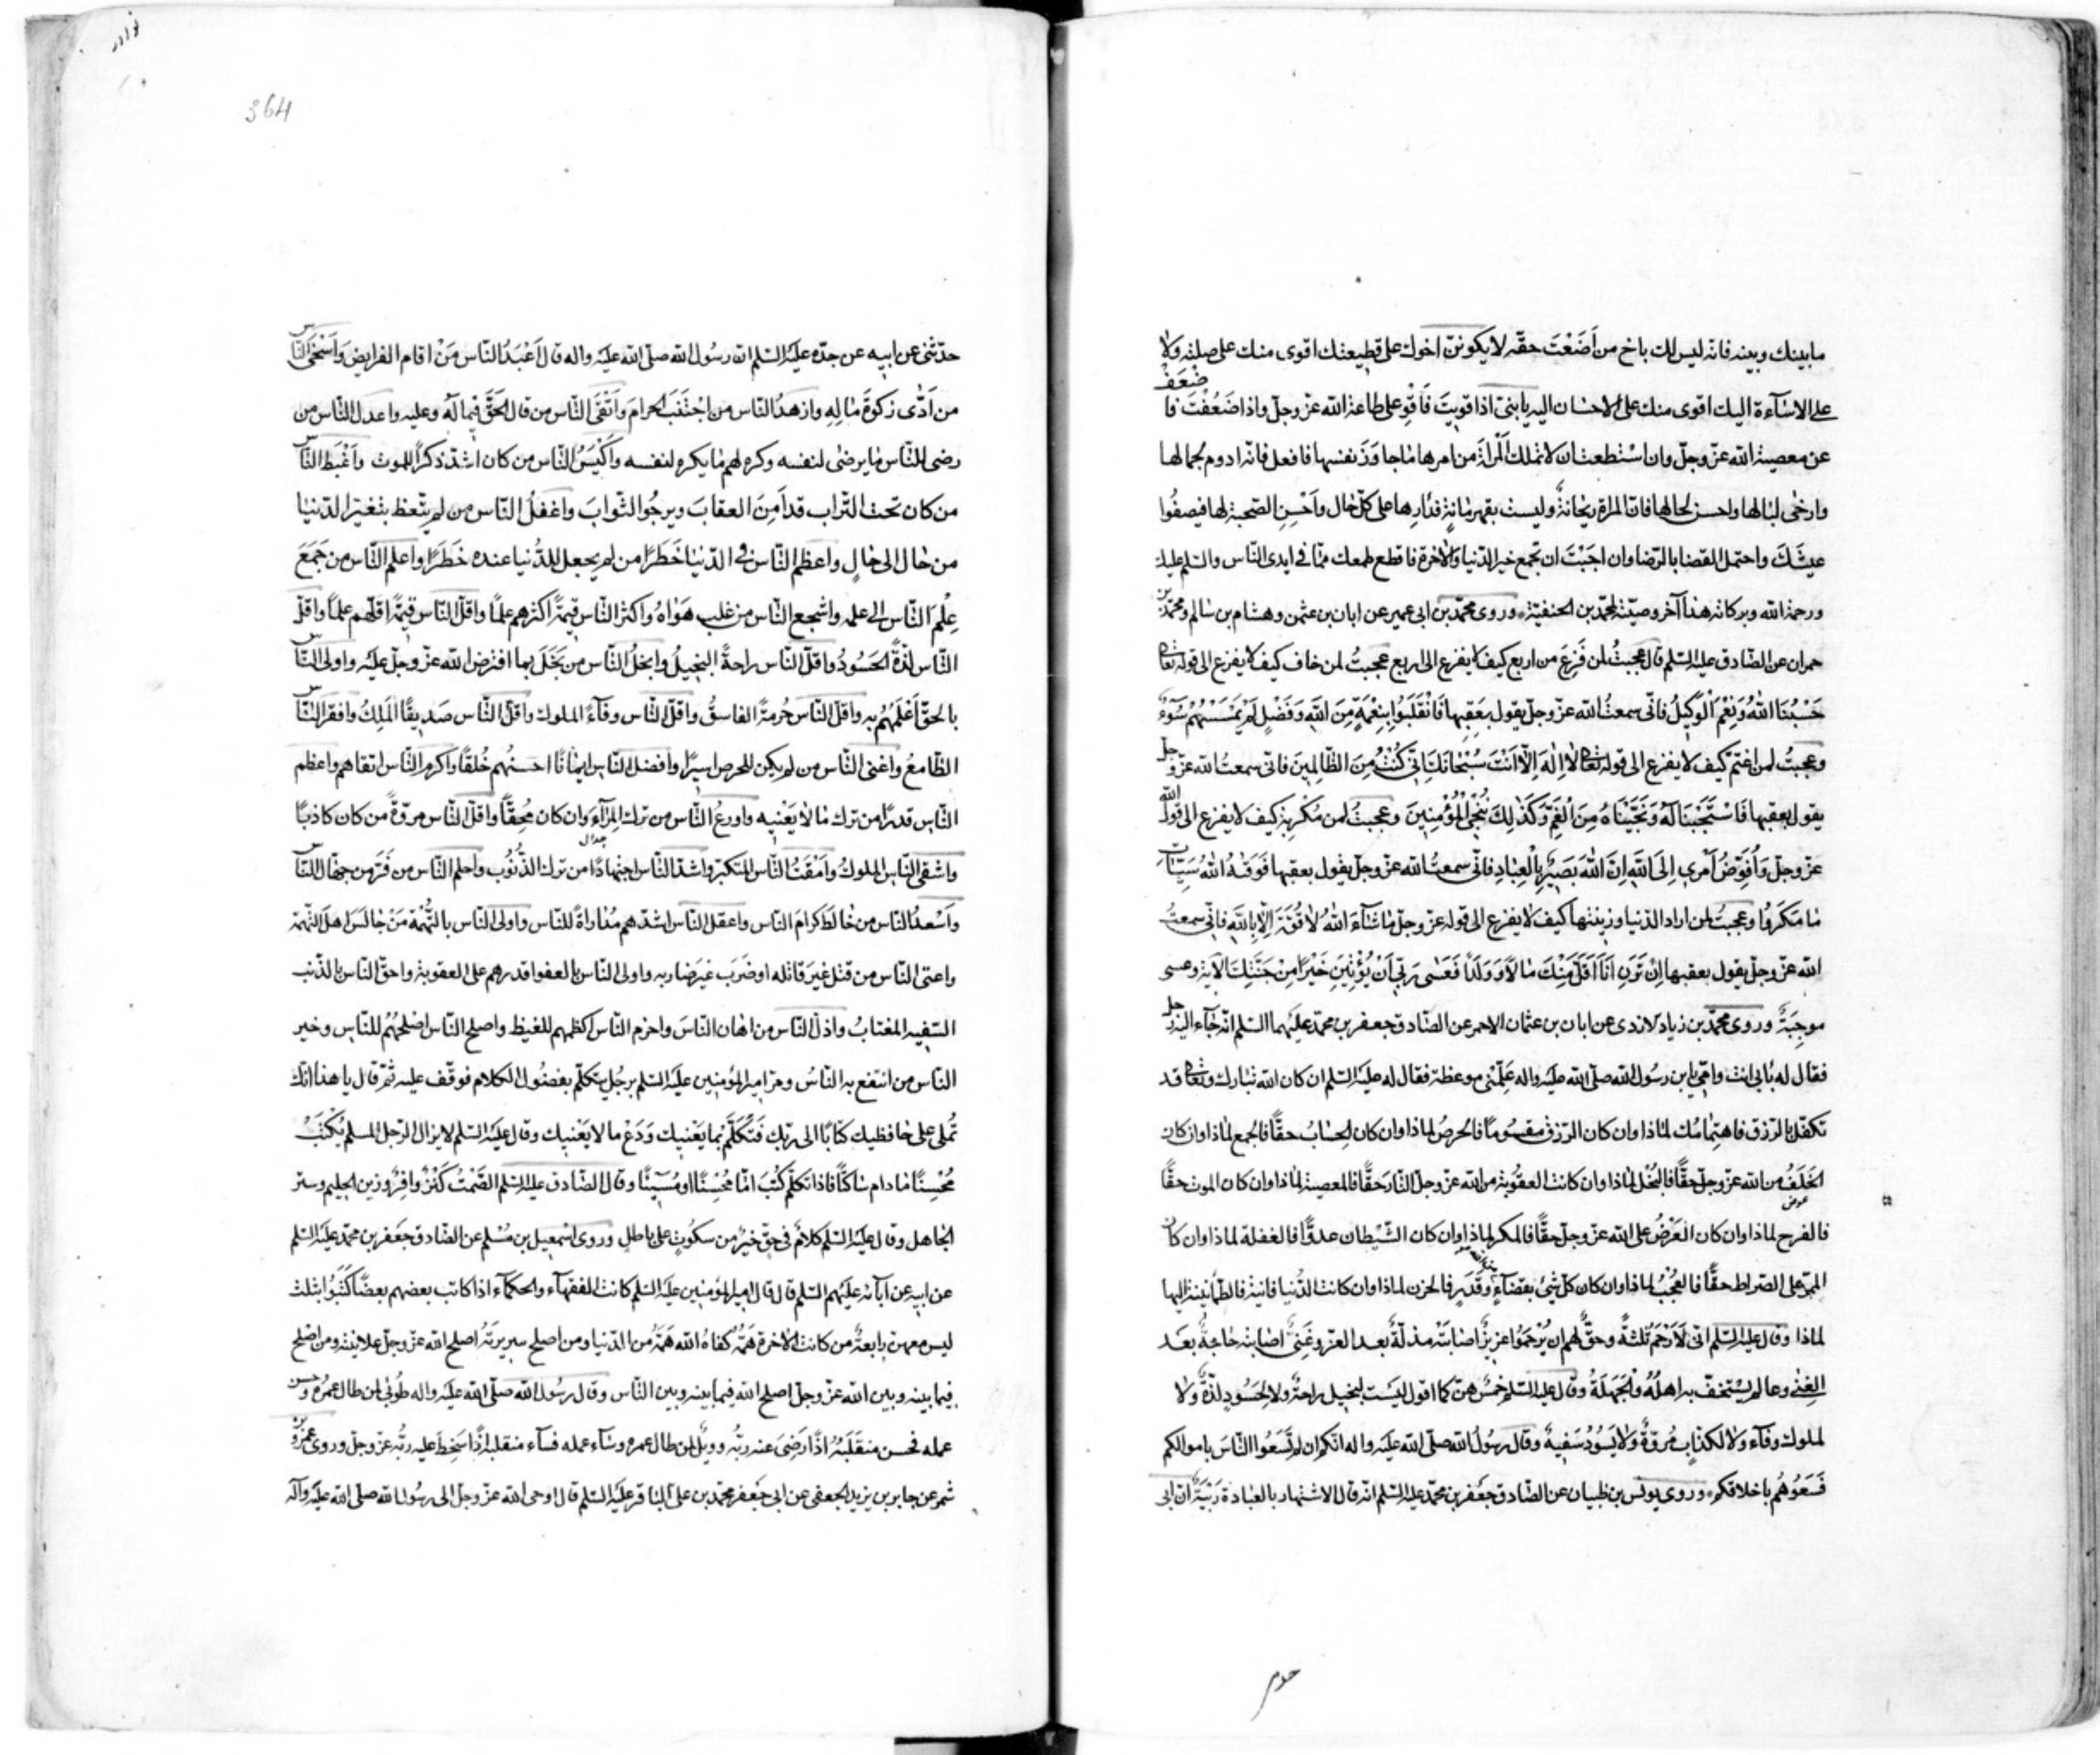 ما بينك وبينه فانه ليس لك باخ من اَضَعْتَ حقّه لا يكوننّ اخوك على قطيعتك اقوى منك على صلته ولا
على الاسٰآءة اليك اقوى منك على الاحسان اليه يا بنىّ اذا قويت فَاقْوِ على طاعة الله عزّ وجلّ واذا ضَعُفْتَ فا
ضْعَفْ
عن معصية الله عزّ وجلّ وان اسْتطعت ان لا تملك اَلْمَرْاَةَ من امرها مٰا جاوَزَ نفسها فافعل فانّه ادوم لجمالها
وارخٰى لبٰالها واحسن لحالها فانّ المراة ريحٰانةٌ وليست بقهرمٰانةٍ فدٰارِها على كلّ حٰال واَحْسِنِ الصّحبة لها فيصفُوا
عيشُكَ واحتمل القضا بالرّضا وان احبَبْتَ ان تجمع خير الدّنيا والاٰخرة فاقطع طمعك ممّا فى ايدى النّاس والسّلم عليك
ورحمة الله وبركاته هذا آخر وصيّته لمحمّد بن الحنفيّة وروى محمّد بن ابى عمير عن ابان بن عثمن وهشام بن سٰالم ومحمّد بن
حمران عن الصّادق عليه السّلم قال عجبتُ لمن فَزِعَ من اربع كيف لا يفزع الى اربع عجبتُ لمن خاف كيف لا يفزع الى قوله تعالى
حَسْبُنَا اللهُ وَنِعْمَ الْوَكيلُ فانّى سمعتُ الله عزّ وجلّ يقول بعَقِبها فَانْقَلَبُوا بِنِعْمَةٍ مِنَ اللهِ وَفَضْلٍ لَمْ يَمْسَسْهُمْ سُوٓءٌ
وعجبتُ لمن اغتمّ كيف لا يفزع الى قوله تعالى لٰا اِلٰهَ اِلّٰا اَنْتَ سُبْحٰانَكَ اِنّى كُنْتُ مِنَ الظّٰالِمينَ فانّى سمعتُ الله عزّ وجلّ
يقول بعقبها فَاسْتَجَبْنَا لَهُ وَنَجَّيْنَاهُ مِنَ الْغَمِّ وَكَذٰلِكَ نُنْجِى الْمُؤْمِنينَ وعجبتُ لمن مُكِرَ به كيف لا يفزع الى قول الله
عزّ وجلّ وَاُفَوِّضُ اَمْرى اِلَى اللهِ اِنَّ اللهَ بَصيرٌ بِالْعِبٰادِ فانّى سمعتُ الله عزّ وجلّ يقول بعقبها فَوَقٰهُ اللهُ سَيِّئٰاتِ
مٰا مَكَرُوا وعجبتُ لمن اراد الدّنيا وزينتها كيف لا يفزع الى قوله عزّ وجلّ مٰا شٰآءَ اللهُ لٰا قُوَّةَ اِلّٰا بِاللهِ فانّى سمعتُ
الله عزّ وجلّ يقول بعقبها اِنْ تَرَنِ اَنَا اَقَلَّ مِنْكَ مٰالًا وَوَلَدًا فَعَسٰى رَبّى اَنْ يُؤْتِيَنِ خَيْرًا مِنْ جَنَّتِكَ الآية وعسى
موجِبَةٌ وروى محمّد بن زياد الازدى عن ابان بن عثمان الاحمر عن الصّادق جعفر بن محمّد عليهما السّلم انّه جٰآء اليه رجل
فقال له بٰابى انت وامّى يا بن رسول الله صلّى الله عليه واله عَلِّمْنى موعظة فقال له عليه السّلم ان كان الله تبارك وتعالى قد
تكفّل بالرّزق فاهتِمٰامُك لمٰاذا وان كان الرّزق مقسُومًا فالحرصُ لماذا وان كان الحِسٰابُ حقًّا فالجمع لمٰاذا وان كان
الخَلَفُ من الله عزّ وجلّ حقًّا فالبُخْل لمٰاذا وان كانت العقوُبة من الله عزّ وجلّ النّارَ حَقًّا فالمعصية لمٰاذا وان كان الموت حقًّا
فالفرح لماذا وان كان العَرْضُ على الله عزّ وجلّ حقًّا فالمكر لماذا وان كان الشّيْطان عدوًّا فالغفلة لماذا وان كان
الممرّ على الصّراط حقًّا فالعُجْبُ لماذا وان كان كلّ شىءٍ بقضآءٍ وقَدَرٍ فالحزن لماذا وان كانت الدّنيا فانيةً فالطمٰانينة اليها
لماذا وقال عليه السّلم انّى لَاَرْحَمُ ثلثةً وحقٌّ لهم ان يُرْحَمُوا عزيزٌ اصٰابَتْهُ مذلّةٌ بعد العزّ وغَنِىٌّ اصٰابته حٰاجةٌ بعَد
الغِنٰى وعالم يَسْتخفّ به اهلُهُ والجَهَلَةُ وقال عليه السّلم خمسٌ هنّ كما اقول ليسَت لبخيل راحةٌ ولا لحَسُودٍ لذّةٌ ولا
لملوك وفآء ولا لكذّابٍ مُروّةٌ وَلا يَسُودُ سَفِيهٌ وقال رسُول الله صلّى الله عليه واله انّكم ان لم تَسَعُوا النّاسَ باموالكم
فَسَعُوهُم باخلاقكم وروى يونس بن ظبيان عن الصّادق جعفر بن محمّد عليه السّلم انّه قال الاشتهار بالعبٰادة رَيْبَةٌ انّ ابى
364
حدّثنى عن ابيه عن جدّه عليه السّلم انّ رسُول الله صلّى الله عليه واله قال اَعْبَدُ النّاس مَنْ اقام الفرايض وَاَسْخَى النّاس
من اَدّٰى زكوةَ مٰالِهِ وازهدُ النّاس من اجْتَنَبَ الحرامَ وَاَتْقَى النّاس من قال الحَقَّ فيمٰا لَهُ وعليه واعدل النّاس من
رضى للنّاس مٰا يرضى لنفسه وكره لهم مٰا يكره لنفسه واَكْيَسُ النّاس من كان اشدّ ذكرًا للموت واَغْبَطُ النّاس
من كان تحت التّراب قد اَمِنَ العقابَ ويرجُو الثّوابَ واغفلُ النّاس من لم يتّعظ بتغيّر الدّنيٰا
من حٰال الى حٰالٍ واعظم النّاس فى الدّنيٰا خَطَرًا من لم يجعل للدّنيا عنده خَطَرًا واعلم النّاس من جَمَعَ
عِلْمَ النّاس الى علمه واشجع النّاس من غلب هَوٰاهُ واكثر النّاس قيمَةً اكثرهم علمًا واقلّ النّاس قيمَةً اقلّهم علمًا واقلّ
النّاس لذّةً الحَسُودُ واقلّ النّاس راحةً البخيلُ وابخلُ النّاس من بَخِلَ بما افترض الله عزّ وجلّ عليه واولى النّاس
بالحقّ اَعْلَمُهُمْ به واقلّ النّاس حُرمةً الفاسقُ واقلّ النّاس وفآءً الملوك واقلّ النّاس صَديقًا المَلِكُ وافقر النّاس
الطّامعُ واغنى النّاس من لم يكن للحرص اسيرًا وافضل النّاس ايمٰانًا احسنُهم خُلقًا واكرم النّاس اتقاهم واعظم
النّاس قدرًا من ترك مٰا لا يَعْنيه واورعُ النّاس من ترك المِرٰآءَ وان كان مُحِقًّا واقلّ النّاس مروّةً من كان كاذبًا
جدال
واشقى النّاس الملوكُ واَمْقَتُ النّاس المتكبّر واشدّ النّاس اجتهادًا من ترك الذّنُوبَ واحلم النّاس من فَرَّ من جهّال النّاس
وَاَسْعدُ النّاس من خٰالَطَ كرامَ النّاس واعقل النّاس اشدّهم مُدٰاراةً للنّاس واولى النّاس بالتُّهْمَة مَنْ جٰالَسَ اهلَ التّهمة
واعتى النّاس من قتل غيرَ قاتله او ضَرَبَ غيرَ ضاربه واولى النّاس بالعفو اقدرهم على العقوبة واحقّ النّاس بالذّنب
السّفيه المغتابُ واذلّ النّاس من اهٰان النّاسَ واحزم النّاس اكظمهم للغيظ واصلح النّاس اصْلحُهُمْ للنّاس وخير
النّاس من انتفع به النّاسُ ومرّ امير المؤمنين عليه السّلم برجُلٍ يتكلّم بفضُول الكلام فوقف عليه ثمّ قال يا هذا انّك
تُملى على حٰافظيك كتٰابًا الى ربّك فَتَكَلّمْ بِمٰا يَعْنيك وَدَعْ ما لا يَعْنيك وقال عليه السّلم لا يزال الرّجل المسلم يُكْتَبُ
مُحْسِنًا مٰا دام سٰاكتًا فاذا تكلّم كُتِبَ امّا مُحْسِنًا او مُسيئًا وقال الصّادق عليه السّلم الصَّمْتُ كَنْزٌ وافِرٌ وزين الحليم وستر
الجٰاهل وقال عليه السّلم كلامٌ فى حَقّ خيرٌ من سكُوتٍ على باطلٍ وروى اسْمعيل بن مُسْلم عن الصّادق جَعْفر بن محمّد عليه السّلم
عن ابيه عن آبائه عليهم السّلم قال قال امير المؤمنين عليه السّلم كانت الفقهآء والحكمآء اذا كاتب بعضهم بعضًا كَتَبُوا بثلث
ليس معهنّ رابعةٌ من كانت الاٰخرة هَمَّهُ كفاهُ الله هَمَّهُ من الدّنيا ومن اصلح سريرتَهُ اصلح الله عزّ وجلّ علانيته ومن اصْلح
فيما بينه وبين الله عزّ وجلّ اصلح الله فيما بينه وبين النّاس وقال رسُول الله صلّى الله عليه واله طُوبٰى لمن طال عمرُهُ وحسن
عمله فحسن منقَلَبُهُ اذا رَضِىَ عنه ربّه وويلٌ لمن طال عمره وسٰآء عمله فسآء منقلبه اذًا سَخِطَ عليه ربّه عزّ وجلّ وروى عمرو بن
شمر عن جابر بن يزيد الجعفى عن ابى جَعْفر محمّد بن علىّ البٰاقر عليه السّلم قال اوحى الله عزّ وجلّ الى رسُول الله صلى الله عليه وآله